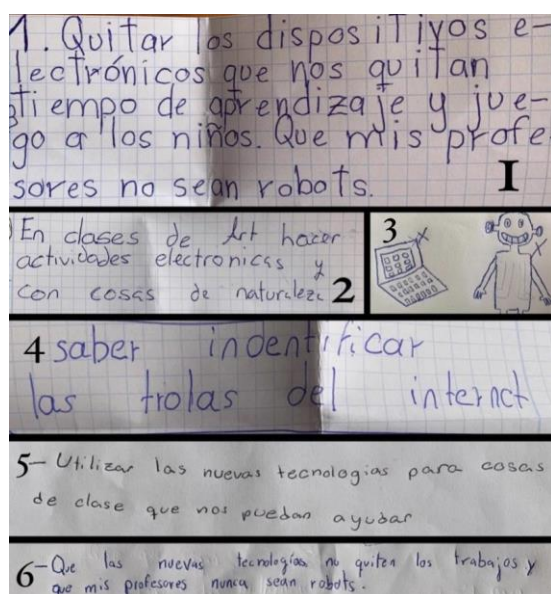 1. Quitar los dispositivos e-
lectrónicos que nos quitan
tiempo de aprendizaje y jue-
go a los niños. Que mis profe
sores no sean robots.
I
En clases de Art hacer
actividades electronicas y
con cosas de naturaleza 2
3
4 saber indentificar
las trolas del internet
5- Utilizar las nuevas tecnologias para cosas
de clase que nos puedan ayudar
6- Que las nuevas tecnologías no quiten los trabajos y
que mis profesores nunca sean robots.